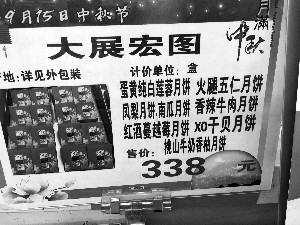 9月15日中秋节
月满中秋
大展宏图
产地:详见外包装
计价单位:盒
蛋黄纯白莲蓉月饼 火腿五仁月饼
凤梨月饼.南瓜月饼 香辣牛肉月饼
红酒蔓越莓月饼 xo干贝月饼
桃山牛奶香柚月饼
售价:338元